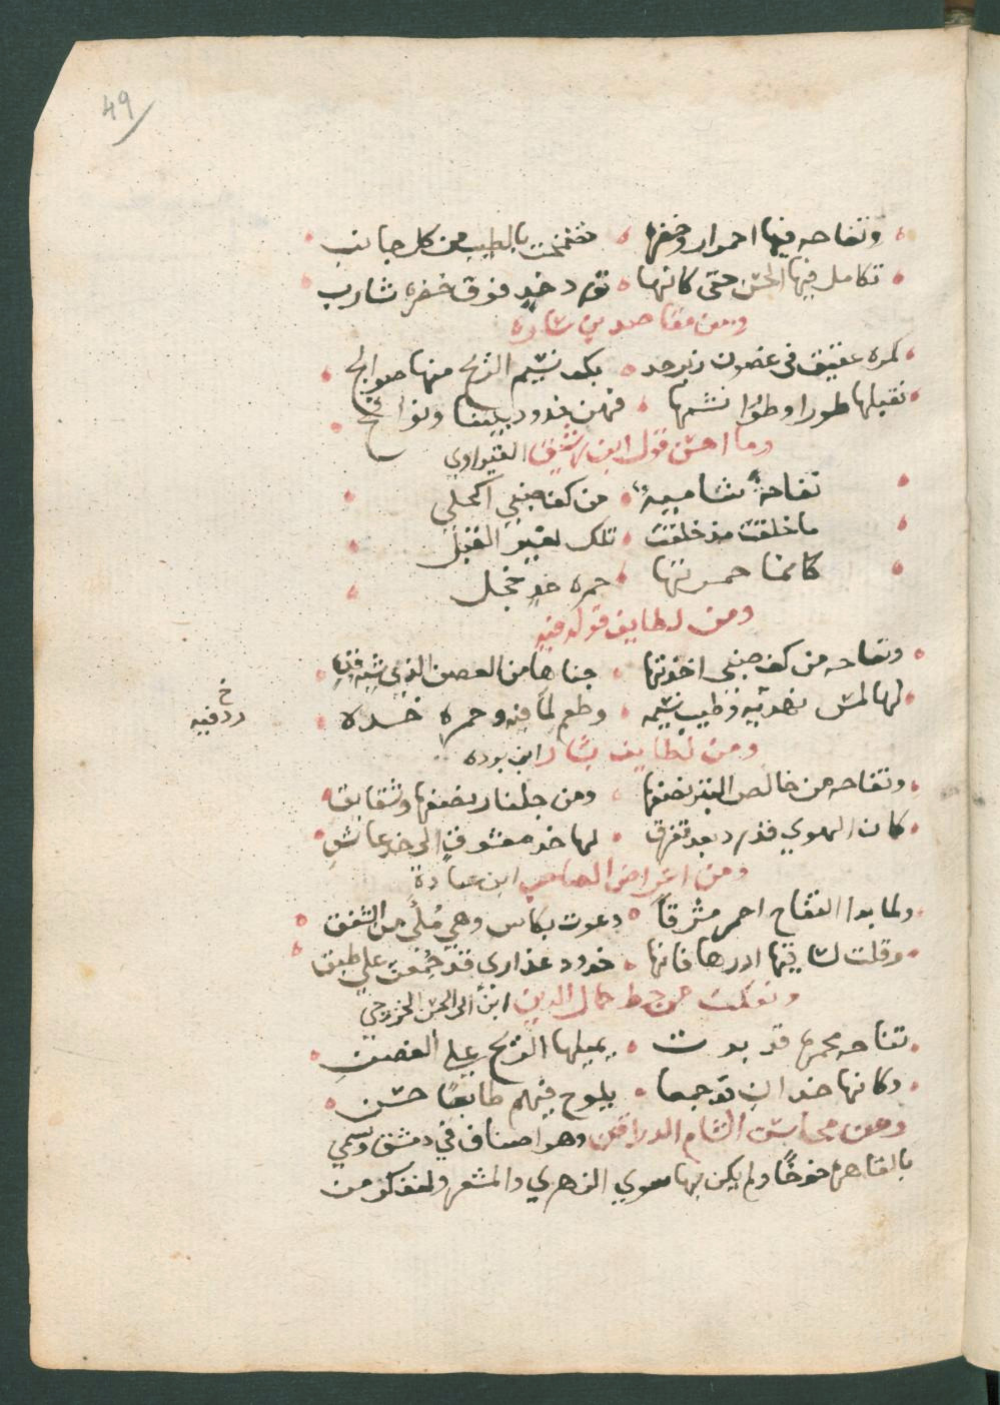 49
وتفاحه فيها احمرار وخضره • تضمخت بالطيب من كل جانب
• تكامل فيها الحسن حتى كانها • تورد خدٍ فوق خضره شارب
ومن مقاصد بن شاره
• كره عقيق في غصون زبرجد • بكف نسيم الريح منها صوالج
• نقبلها طورا وطورا نشمها • فهن خدود بيننا ونوافج
وما احسن قول ابن رشيق القيرواني
تفاحةٌ شاميةٌ • من كف ظبي اكحلي
ما خلقت مذ خلقت • تلك لغير القبل
كانما حمرتها • حمره خدٍ خجل
ومن لطايف قوله فيه
وتفاحه من كف ظبي اخذتها • جناها من الغصن الذي شبه قده
• لها لمس نهديه وطيب نسيمه • وطعم لما فيه وحمره خده
خ
ردفيه
ومن لطايف بشار ابن برده
• وتفاحه من خالص التبر نصفها • ومن جلنار نصفها وشقايق
• كان الهوي قد رد بعد تفرق • لها خد معشوق الي خد عاشق
ومن اغراض الصاحب ابن عبادة
• ولما بدا التفاح احمر مشرقاً • دعوت بكاس وهي مُلئ من الشفق
• وقلت لساقيها ادرها فانها • خدود عذاري قد جُمعن علي طبق
ونقلت من خط جمال الدين ابن ابي الحسن الخزرجي
• تفاحه محمره قد بدت • يميلها الريح علي الغصن
• وكانها خدان قد جمعا • يلوح فيهم طابعًا حسن
ومن محاسن الشام الدراقن وهو اصناف في دمشق ويسمي
بالقاهرة خوخًا ولم يكن بها سوي الزهري والمشعر ولنذكر من